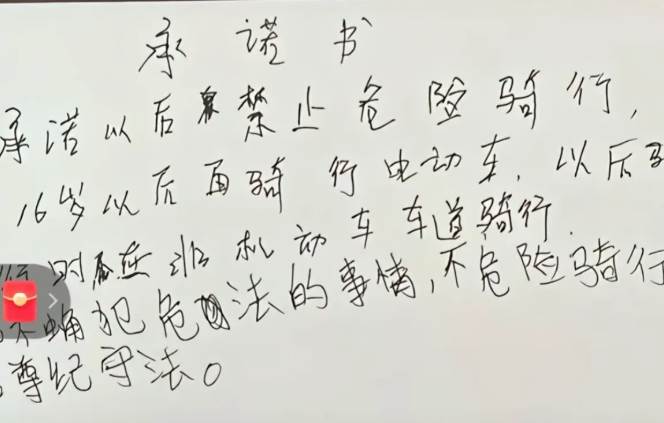 承诺书
承诺以后禁止危险骑行，
16岁以后再骑行电动车，以后骑
行时在非机动车车道骑行.
不触犯危法的事情，不危险骑行
尊纪守法。